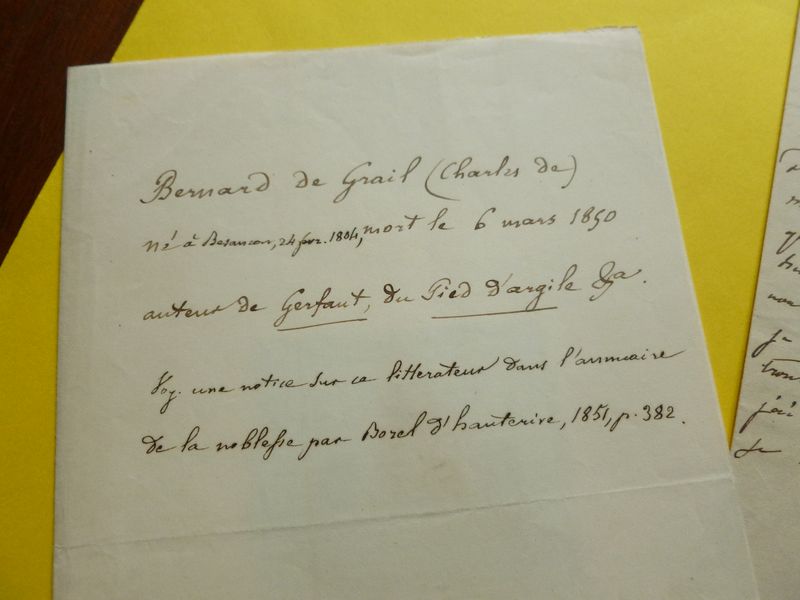 Bernard de Grail (Charles de)
né à Besancon, 24 fvr. 1804, mort le 6 mars 1850
auteur de Gerfaut, du Pied d'argile &a.
Voy. une notice sur ce litterateur dans l'annuaire
de la noblesse par Borel d'hauterive, 1851, p. 382.
je
j'ai
de